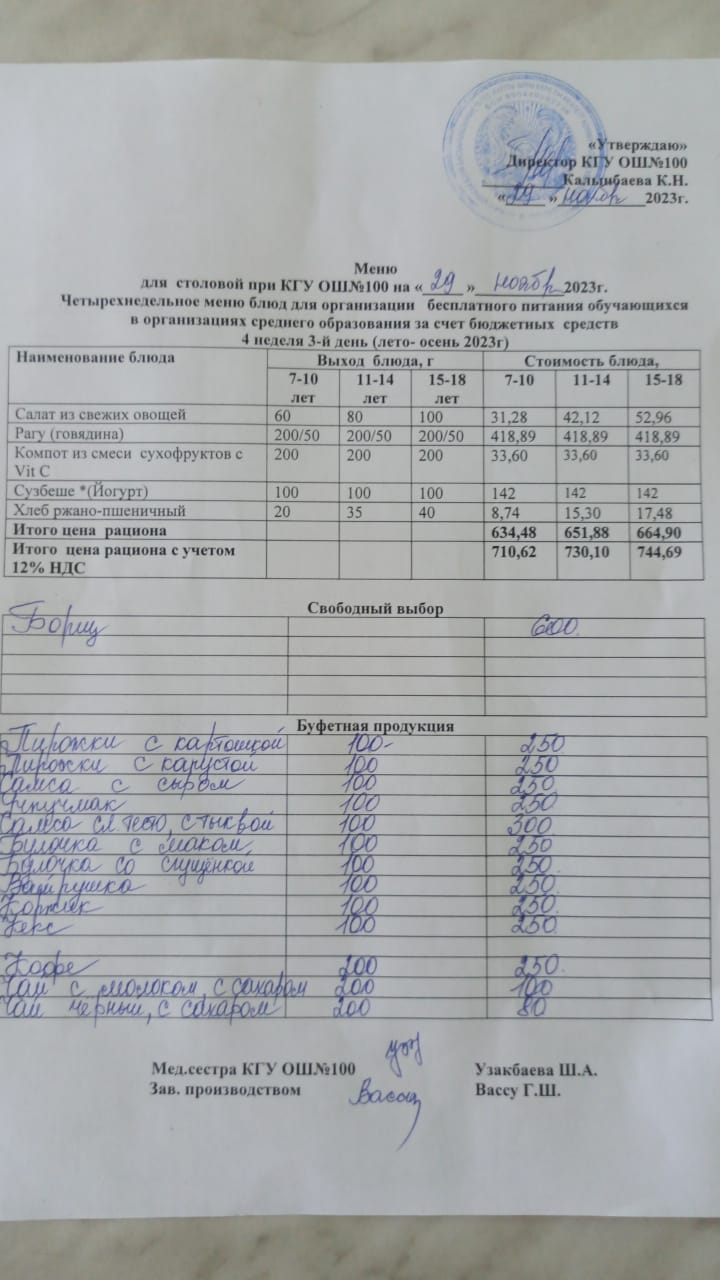 «Утверждаю»
Директор КГУ ОШ№100
Калынбаева К.Н.
«29» ноябр 2023г.
Меню
для столовой при КГУ ОШ№100 на «29» ноябр 2023г.
Четырехнедельное меню блюд для организации бесплатного питания обучающихся
в организациях среднего образования за счет бюджетных средств
4 неделя 3-й день (лето- осень 2023г)
Наименование блюда Выход блюда, г Стоимость блюда,
7-10 лет 11-14 лет 15-18 лет 7-10 11-14 15-18
Салат из свежих овощей 60 80 100 31,28 42,12 52,96
Рагу (говядина) 200/50 200/50 200/50 418,89 418,89 418,89
Компот из смеси сухофруктов с 200 200 200 33,60 33,60 33,60
Vit C
Сузбеше *(Йогурт) 100 100 100 142 142 142
Хлеб ржано-пшеничный 20 35 40 8,74 15,30 17,48
Итого цена рациона 634,48 651,88 664,90
Итого цена рациона с учетом 710,62 730,10 744,69
12% НДС
Свободный выбор
Борщ 600
Буфетная продукция
Пирожки с картошкой 100- 250
Пирожки с капустой 100 250
Самса с сыром 100 250
100 250
Самса сл. тесто, с тыквой 100 300
Булочка с маком 100 250
Булочка со сгущенкой 100 250
Ватрушка 100 250
Коржик 100 250
Кекс 100 250
Кофе 200 250
Чай с молоком, с сахаром 200 100
Чай черный, с сахаром 200 80
Мед.сестра КГУ ОШ№100 Узакбаева Ш.А.
Зав. производством Вассу Г.Ш.